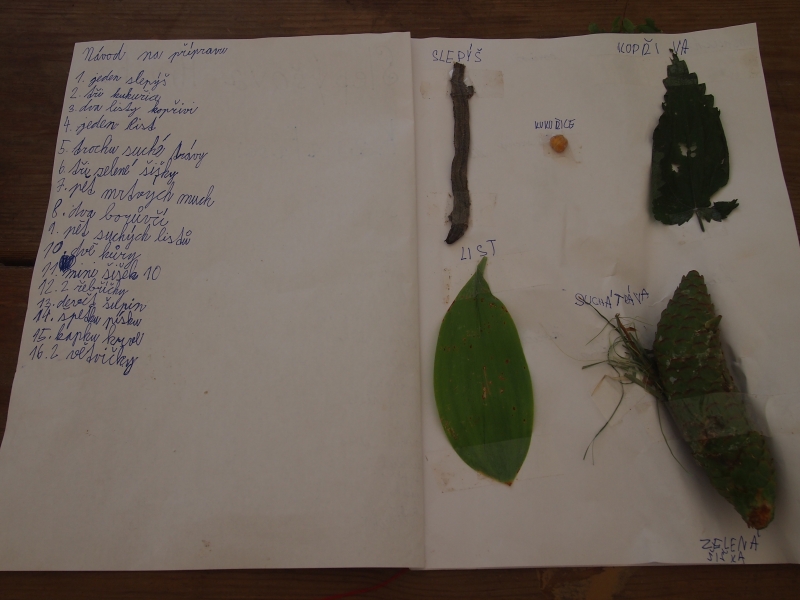 Návod na přípravu
1. jeden slepýš
2. tři kukuřice
3. dva listy kopřivi
4. jeden list
5. trochu suché trávy
6. tři zelené šišky
7. pět mrtvých much
8. dva borůvčí
9. pět suchých listů
10. dvě kůry
11. mini šišek 10
12. 2 řebříčky
13. devět šupin
14. špetku písku
15. kapku
16. 2 větvičky
SLEPÝŠ
KUKUŘICE
KOPŘIVA
LIST
SUCHÁ TRÁVA
ZELENÁ
ŠIŠKA